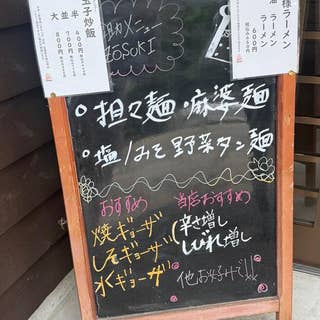 玉子炒飯
半 400円
並 700円
大 800円
様ラーメン
ラーメン
ラーメン
600円
メニュー
◦担々麺・麻婆麺
◦塩/みそ野菜タン麺
おすすめ
焼ギョーザ
しそギョーザ
水ギョーザ
当店おすすめ
辛さ増し
しびれ増し
他お好みで!!